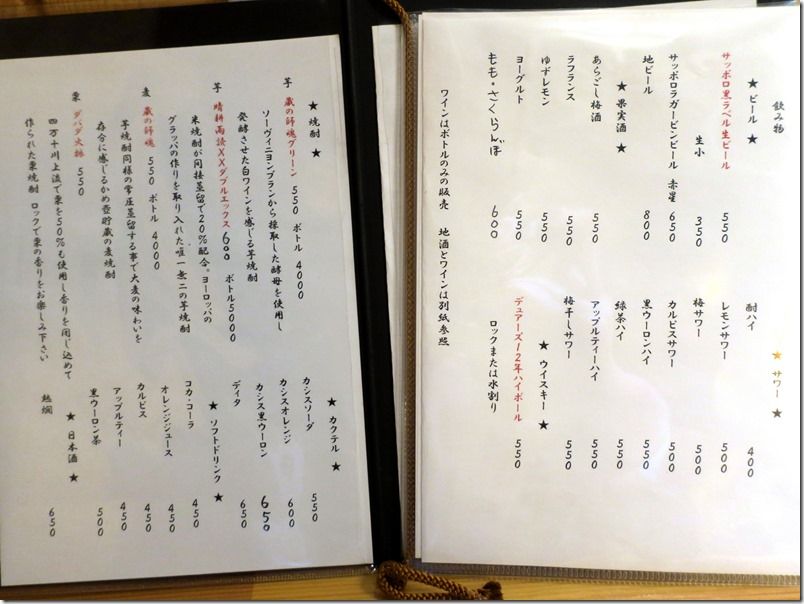 飲み物
★ビール★
サッポロ黒ラベル生ビール 550
生小 350
サッポロラガービンビール 赤星 650
地ビール 800
★果実酒★
あらごし梅酒 550
ラフランス 550
ゆずレモン 550
ヨーグルト 550
もも・さくらんぼ 600
ワインはボトルのみの販売 地酒とワインは別紙参照
★サワー★
酎ハイ 400
レモンサワー 500
梅サワー 500
カルピスサワー 500
黒ウーロンハイ 550
緑茶ハイ 550
アップルティーハイ 550
梅干しサワー 550
★ウイスキー★
デュアーズ12年ハイボール 550
ロックまたは水割り
★焼酎★
芋 蔵の師魂グリーン 550 ボトル4000
ソーヴィニヨンブランから採取した酵母を使用し
発酵させた白ワインを感じる芋焼酎
芋 晴耕雨読XXダブルエックス 600 ボトル5000
米焼酎が間接蒸留で20%配合。ヨーロッパの
グラッパの作りを取り入れた唯一無二の芋焼酎
麦 蔵の師魂 550 ボトル4000
芋焼酎同様の常圧蒸留する事で大麦の味わいを
存分に感じるかめ壺貯蔵の麦焼酎
栗 ダバダ火振 550
四万十川上流で栗を50%も使用し香りを閉じ込めて
作られた栗焼酎 ロックで栗の香りをお楽しみ下さい
★カクテル★
カシスソーダ 550
カシスオレンジ 600
カシス黒ウーロン 650
ディタ 650
★ソフトドリンク★
コカ・コーラ 450
オレンジジュース 450
カルピス 450
アップルティー 450
黒ウーロン茶 500
★日本酒★
熱燗 650